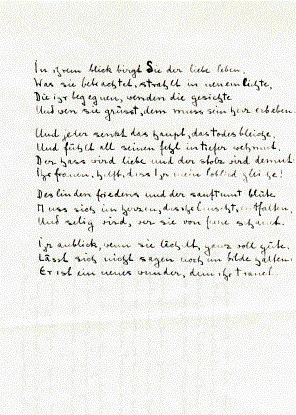 In ihrem blick birgt Sie der liebe leben.
Was sie betrachtet, strahlt in neuem lichte,
Die ihr begegnen, wenden die gesichte
Und wen sie grüsst, dem muss sein herz erbeben.
Und jeder senkt das haupt, das todesbleiche,
Und fühlt all seinen fehl in tiefer wehmut.
Der hass wird liebe und der stolz wird demut.
Ihr frauen, helft, dass ihr mein loblied gleiche!
Des linden friedens und der sanftmut blüte
Muss sich im herzen, das sie hört, entfalten,
Und selig wird, wer sie von ferne schaut.
Ihr anblick, wenn sie lächelt, ganz voll güte,
Lässt sich nicht sagen noch im bilde halten.
Er ist ein neues wunder, dem ihr traut.